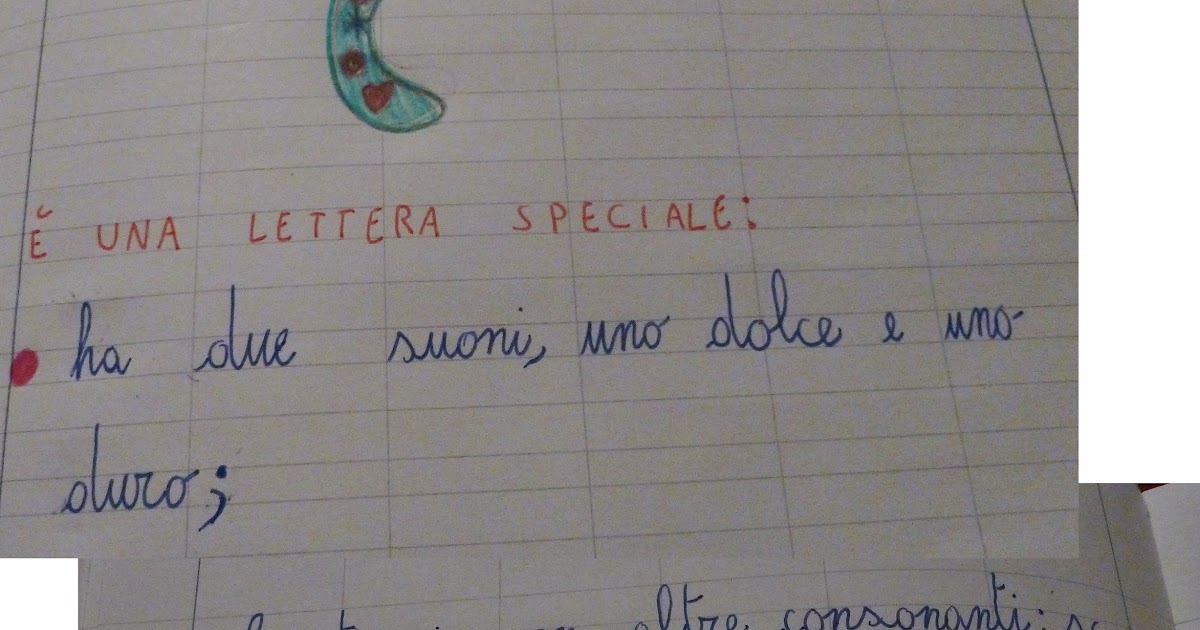 È UNA LETTERA SPECIALE:
ha due suoni, uno dolce e uno
duro;
altre consonanti: